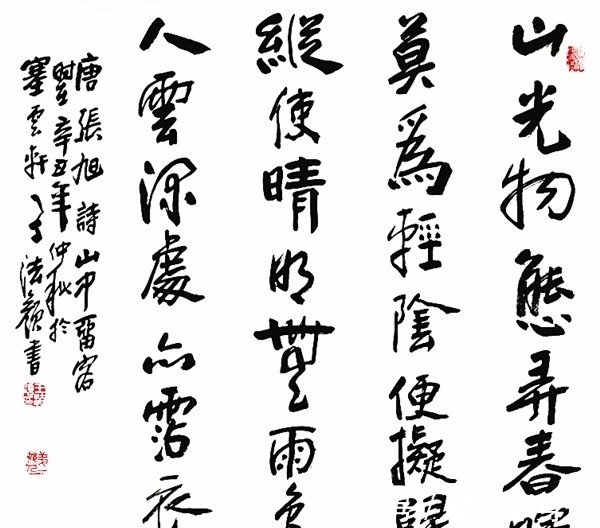 山光物態弄春暉
莫為輕陰便擬歸
縱使晴明無雨色
入雲深處亦霑衣
唐張旭詩山中留客
時在辛丑年仲秋於
塞雲軒 法嶺書